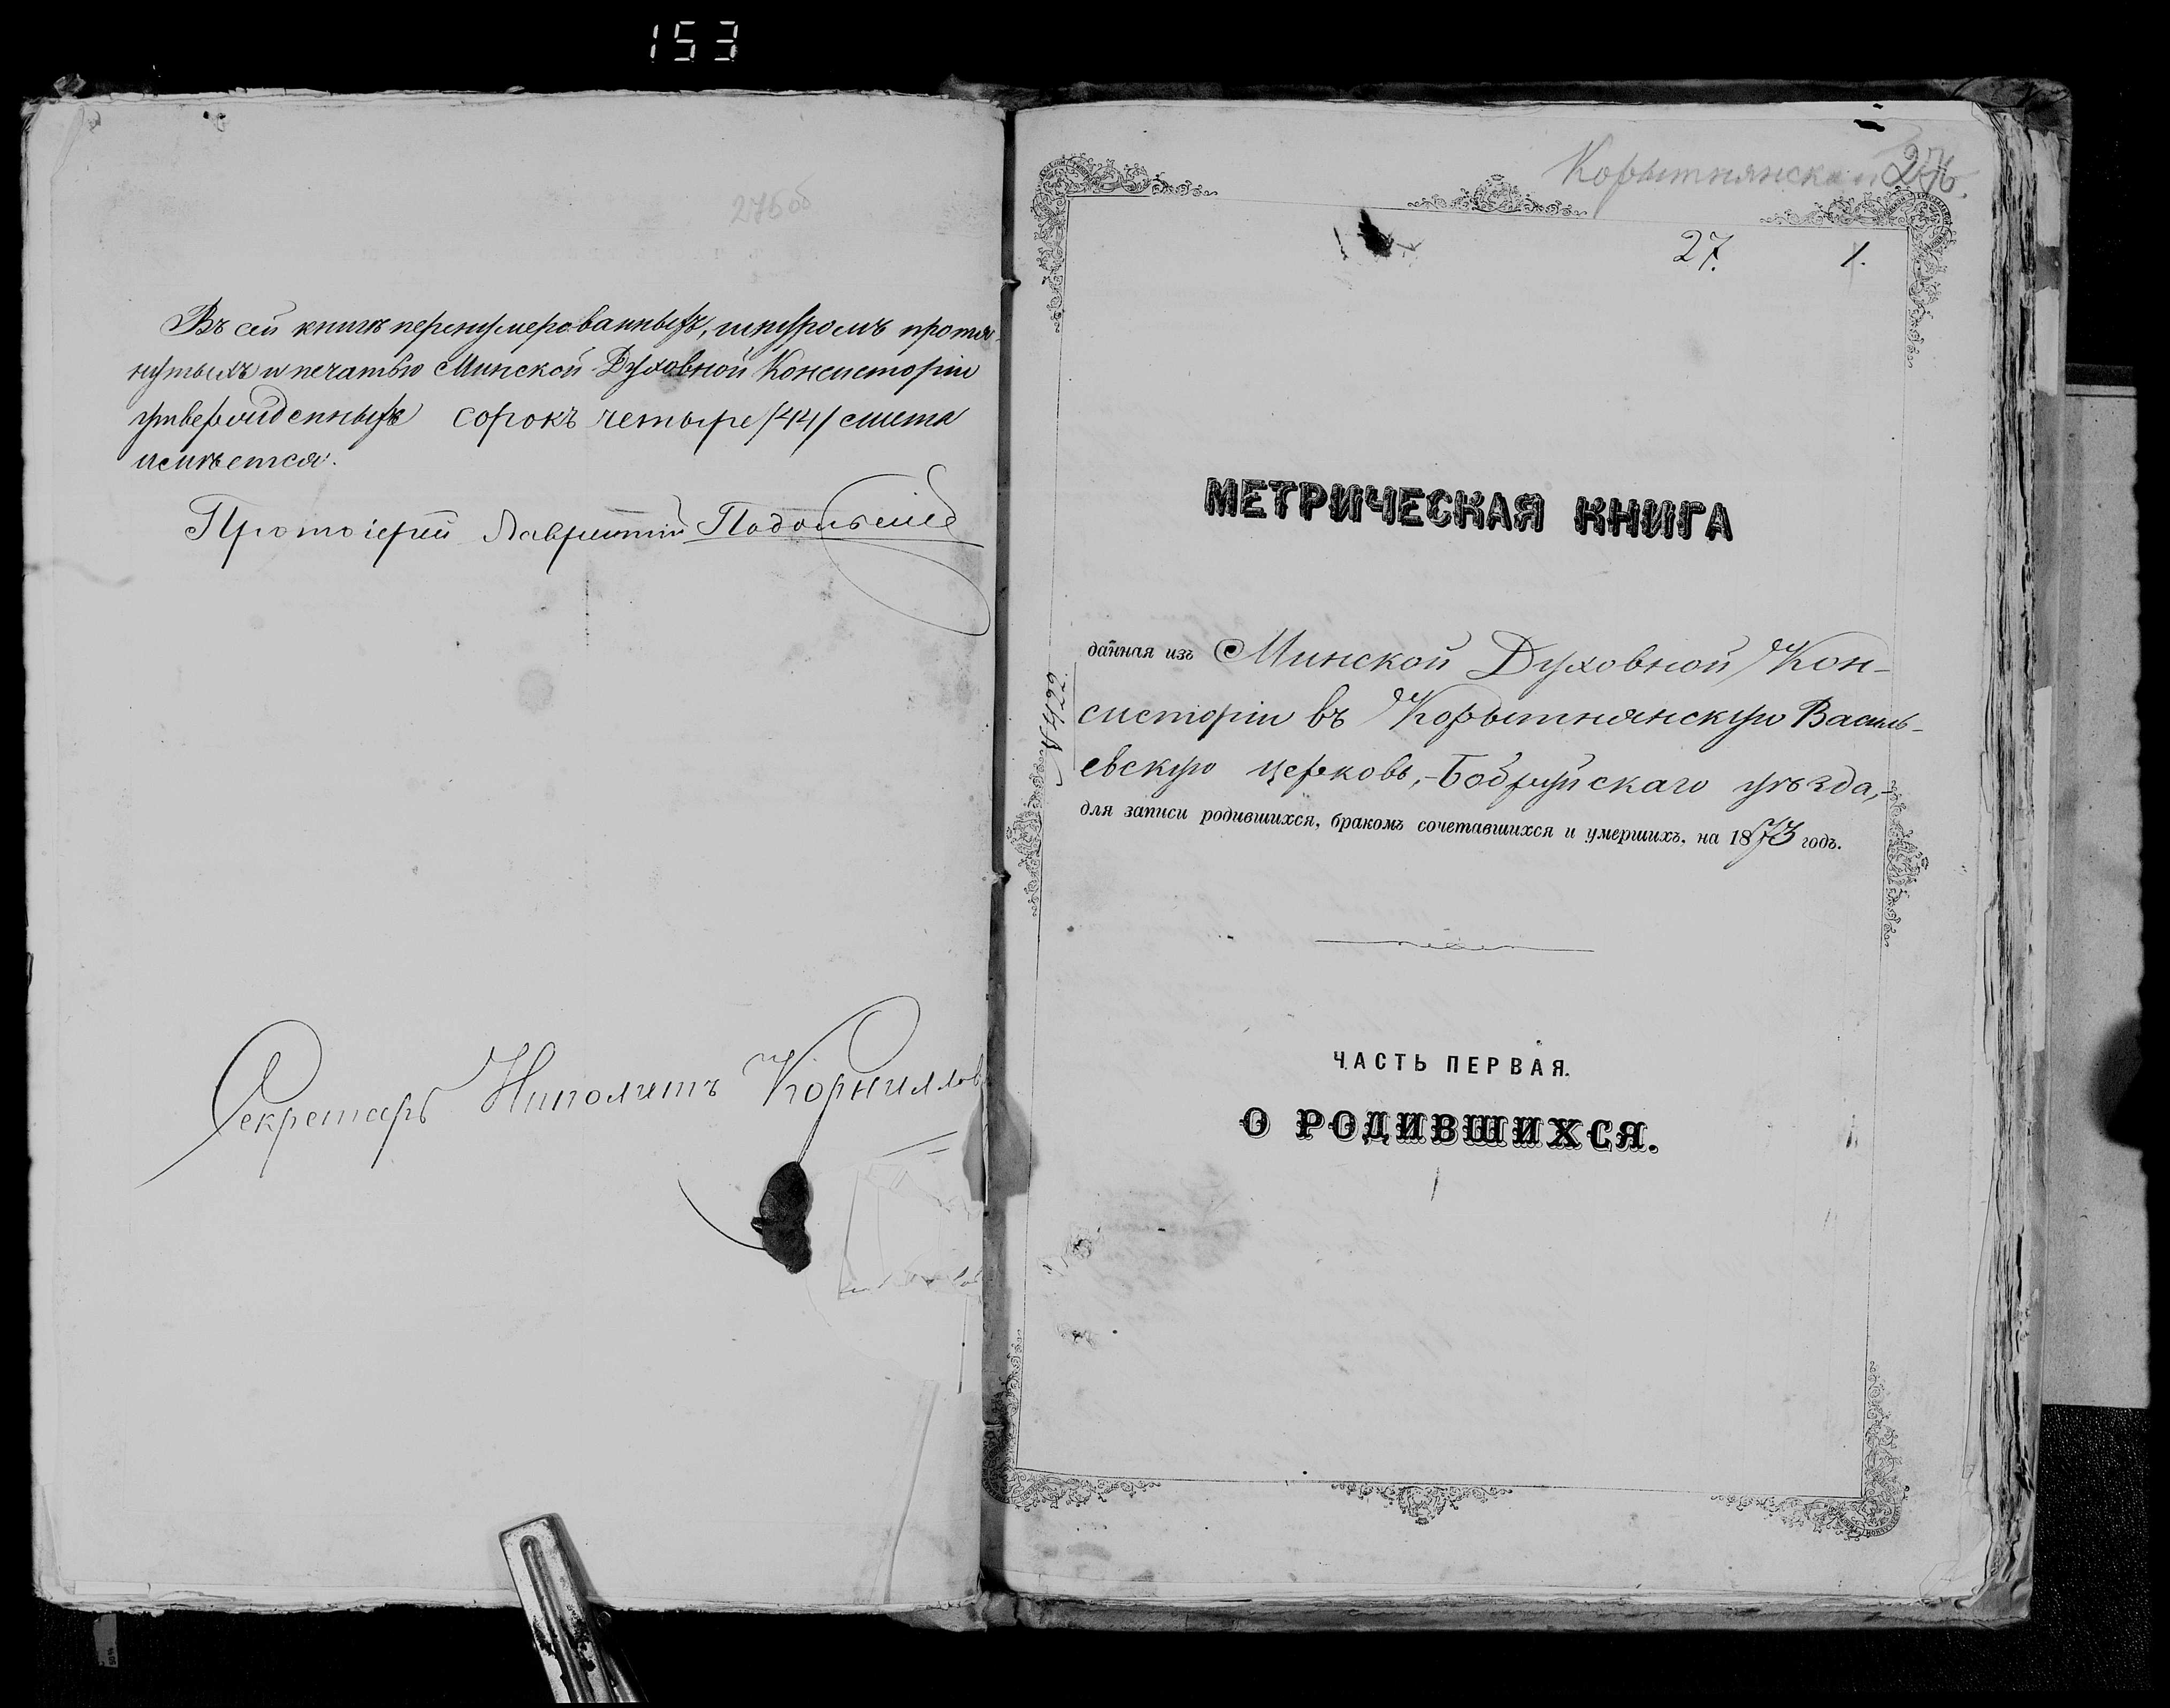 153
275об
Въ сей книгѣ перенумерованныхъ, шнуромъ протя-
нутыхъ и печатью Минской Духовной Консисторіи
утвержденныхъ сорокъ четыре /44/ листа
имѣется.
Протоіерей Лаврентій Подольскій
Секретарь Иполитъ Корнилов
Корытнянская
27. 1.
МЕТРИЧЕСКАЯ КНИГА
данная изъ Минской Духовной Кон-
систоріи въ Корытнянскую Василь-
евскую церковь, Бобруйскаго уѣзда,-
для записи родившихся, бракомъ сочетавшихся и умершихъ, на 1873 годъ.
ЧАСТЬ ПЕРВАЯ.
О РОДИВШИХСЯ.